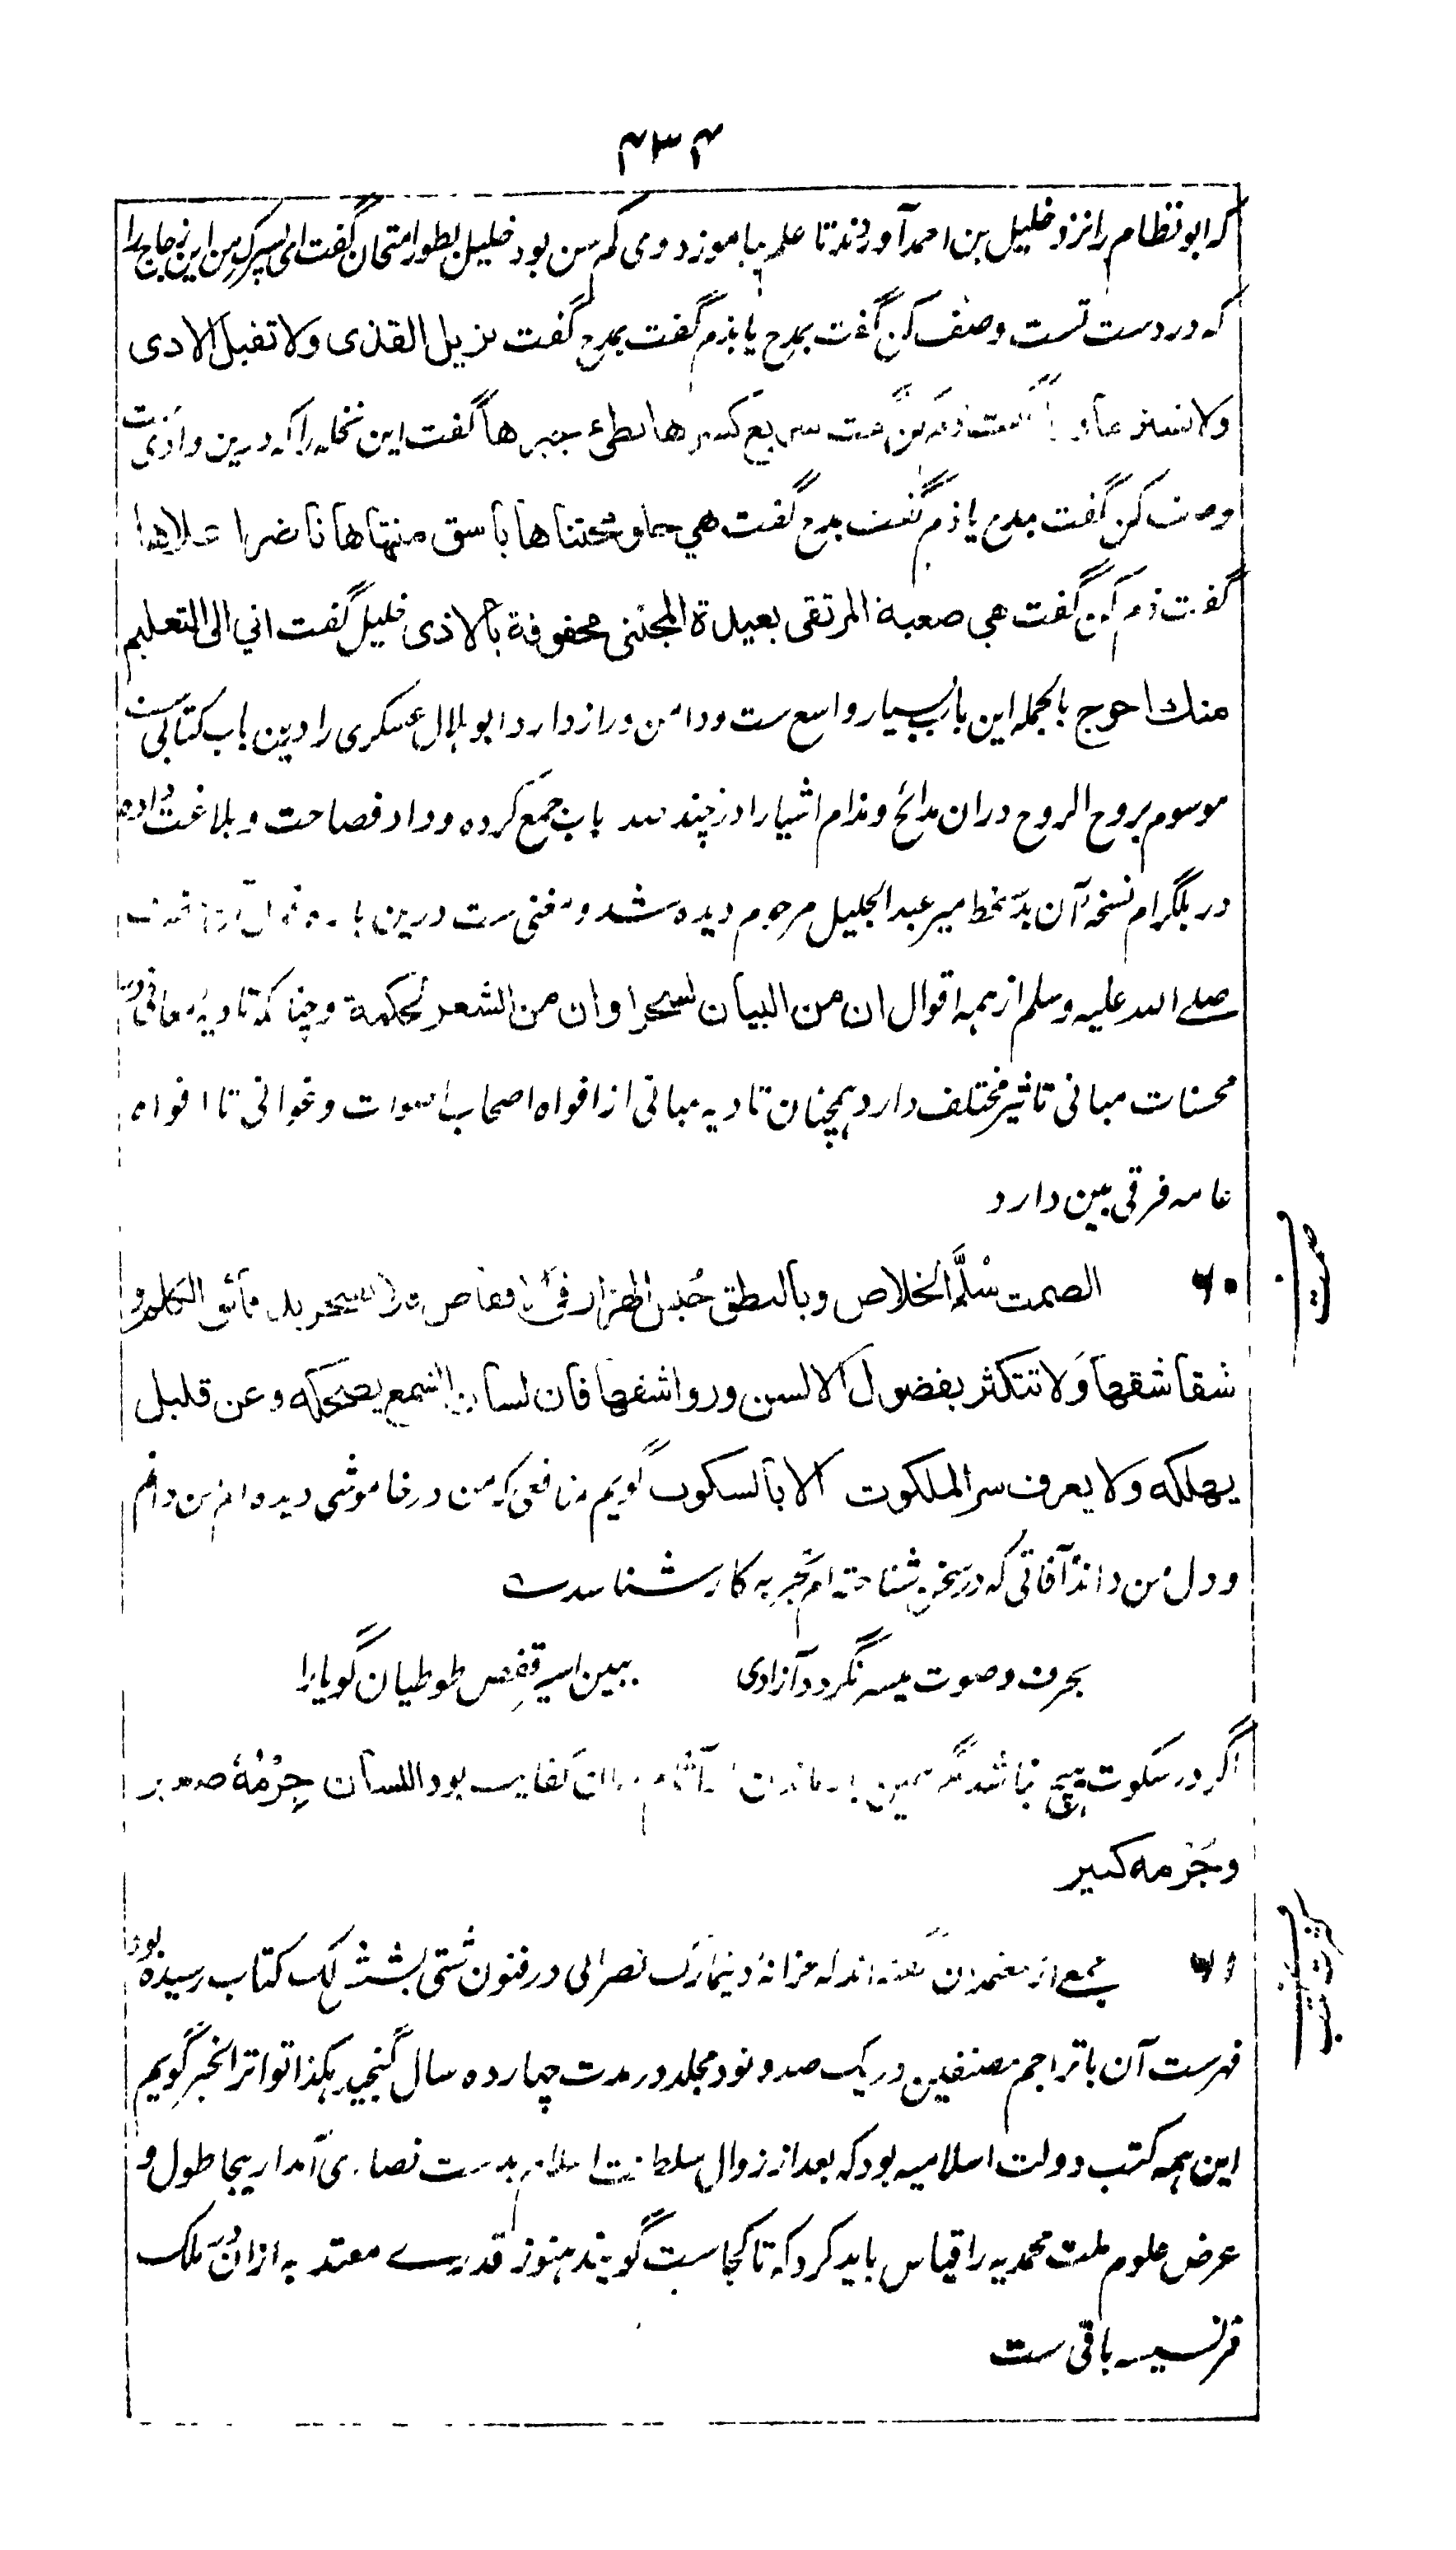 ۴۳۴
که ابو نظام را نزد خلیل بن احمد آوردند تا علم بیاموزد و وی کم سن بود خلیل بطور امتحان گفت ای پسرک من این زجاج را
که در دست تست وصف کن گفت بمدح یا بذم گفت بمدح گفت تزیل القذی ولا تقبل الاذی
ولا تستر گفت سریع کسرها بطیء جبرها گفت این نخله را که درین وادی ست
وصف کن گفت بمدح یا ذم گفت بمدح گفت هي حلو مجتناها باسق منتهاها ناضر اعلاها
گفت ذم کن گفت هي صعبة المرتقی بعیدة المجتنی محفوفة بالاذی خلیل گفت اني الی التعلیم
منك احوج بالجمله این باب بسیار واسع ست ودامن دراز دارد ابو ہلال عسکری را درین باب کتابی ست
موسوم بروح الروح دران مدائح ومذام اشیا را در چند صد باب جمع کرده و داد فصاحت و بلاغت داده
در بلگرام نسخه آن بدستخط میر عبد الجلیل مرحوم دیده شد و مغنی ست درین باب
صلے الله علیه وسلم از همه اقوال ان من البیان لسحرا وان من الشعر لحکمة و چنانکه تادیه معانی در
محسنات مبانی تاثیر مختلف دارد همچنان تادیه مبانی از افواه اصحاب اصوات و غوانی تا افواه
عامه فرقی بین دارد
صمت
۶۰ الصمت سُلَّم الخلاص وبالنطق حُبس الهزار في الاقفاص
شقاشقها ولا تتکثر بفضول الالسن ورواشفها فان لسان الشمع یضحکه وعن قلیل
یهلکه ولا یعرف سر الملکوت الا بالسکوت گویم منافعی که من در خاموشی دیده ام من دانم
و دل من داند آفاتی که در سخن شناخته ام تجربه کار شناسد ست
بحرف وصوت میسر نگردد آزادی ببین اسیر قفص طوطیان گویا را
اگر در سکوت هیچ نباشد مگر همین کفایت بود اللسان جِرْمُهُ صغیر
وجُرمه کبیر
کثرت کتب
۶۱ جمعی از معتمدان گفته اند که خزانه دینمارک نصرانی در فنون شتی بشش لک کتاب رسیده بود
فهرست آن با تراجم مصنفین در یک صد و نود مجلد در مدت چهارده سال گنجید هکذا تواتر الخبر گویم
این همه کتب دولت اسلامیه بود که بعد از زوال سلطنت اسلام بدست نصاری آمد اریجا طول و
عرض علوم ملت محمدیه را قیاس باید کرد که تا کجاست گویند هنوز قدرے معتد به ازان در ملک
فرنسیسه باقی ست